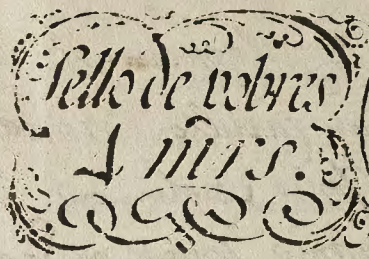 Sello de pobres
4 mrs.